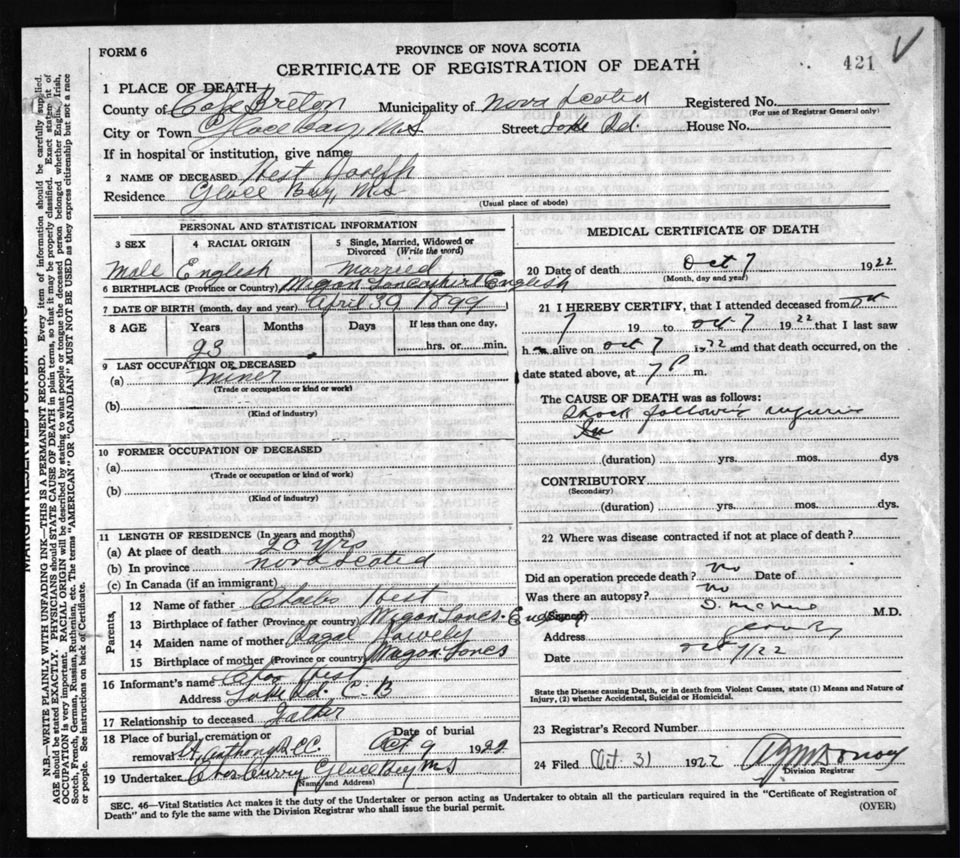 FORM 6
PROVINCE OF NOVA SCOTIA
CERTIFICATE OF REGISTRATION OF DEATH
421
1 PLACE OF DEATH
County of Cape Breton Municipality of Nova Scotia Registered No.
(For use of Registrar General only)
City or Town Glace Bay N.S Street Rd. House No.
If in hospital or institution, give name
2 NAME OF DECEASED West
Residence Glace Bay N S
(Usual place of abode)
PERSONAL AND STATISTICAL INFORMATION
3 SEX 4 RACIAL ORIGIN 5 Single, Married, Widowed or Divorced (Write the word)
Male English Married
6 BIRTHPLACE (Province or Country) Wigan Lancashire English
7 DATE OF BIRTH (month, day and year) April 30 1899
8 AGE Years Months Days If less than one day,
23 hrs. or min.
9 LAST OCCUPATION OF DECEASED
(a) Miner
(Trade or occupation or kind of work)
(b)
(Kind of industry)
10 FORMER OCCUPATION OF DECEASED
(a)
(Trade or occupation or kind of work)
(b)
(Kind of industry)
11 LENGTH OF RESIDENCE (In years and months)
(a) At place of death 20 yrs
(b) In province Nova Scotia
(c) In Canada (if an immigrant)
Parents,
12 Name of father Charles West
13 Birthplace of father (Province or country) Wigan Lancs. England
14 Maiden name of mother
15 Birthplace of mother (Province or country) Wigan Lancs
16 Informant's name Chas West
Address Rd. C. B
17 Relationship to deceased Father
18 Place of burial, cremation or removal St. Anthony R.C.C. Date of burial Oct 9 1922
19 Undertaker Chas Curry Glace Bay N S
(Name and Address)
MEDICAL CERTIFICATE OF DEATH
20 Date of death Oct 7 1922
(Month, day and year)
21 I HEREBY CERTIFY, that I attended deceased from Oct
7 19 to Oct 7 1922 that I last saw
h alive on Oct 7 1922 and that death occurred, on the
date stated above, at 7 P m.
The CAUSE OF DEATH was as follows:
Shock following injuries
(duration) yrs. mos. dys
CONTRIBUTORY
(Secondary)
(duration) yrs. mos. dys.
22 Where was disease contracted if not at place of death?
Did an operation precede death? No Date of
Was there an autopsy? No
(Signed) M.D.
Address
Date Oct 7/22
State the Disease causing Death, or in death from Violent Causes, state (1) Means and Nature of Injury, (2) whether Accidental, Suicidal or Homicidal.
23 Registrar's Record Number
24 Filed Oct. 31 1922
Division Registrar
SEC. 46—Vital Statistics Act makes it the duty of the Undertaker or person acting as Undertaker to obtain all the particulars required in the "Certificate of Registration of
Death" and to fyle the same with the Division Registrar who shall issue the burial permit.
(OVER)
MARGIN RESERVED FOR BINDING
N.B.—WRITE PLAINLY WITH UNFADING INK—THIS IS A PERMANENT RECORD. Every item of information should be carefully supplied.
AGE should be stated EXACTLY. PHYSICIANS should STATE CAUSE OF DEATH in plain terms, so that it may be properly classified. Exact statement of
OCCUPATION is very important. RACIAL ORIGIN will be described by stating to what people or tongue the deceased person belonged, whether English, Irish,
Scotch, French, German, Russian, Ruthenian, etc. The terms "AMERICAN" OR "CANADIAN" MUST NOT BE USED as they express citizenship but not a race
or people. See instructions on back of Certificate.